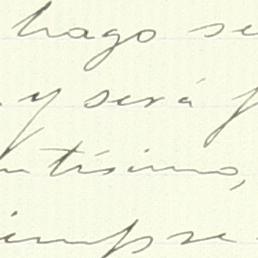 hago se
y será f
ntísimo,
iempre